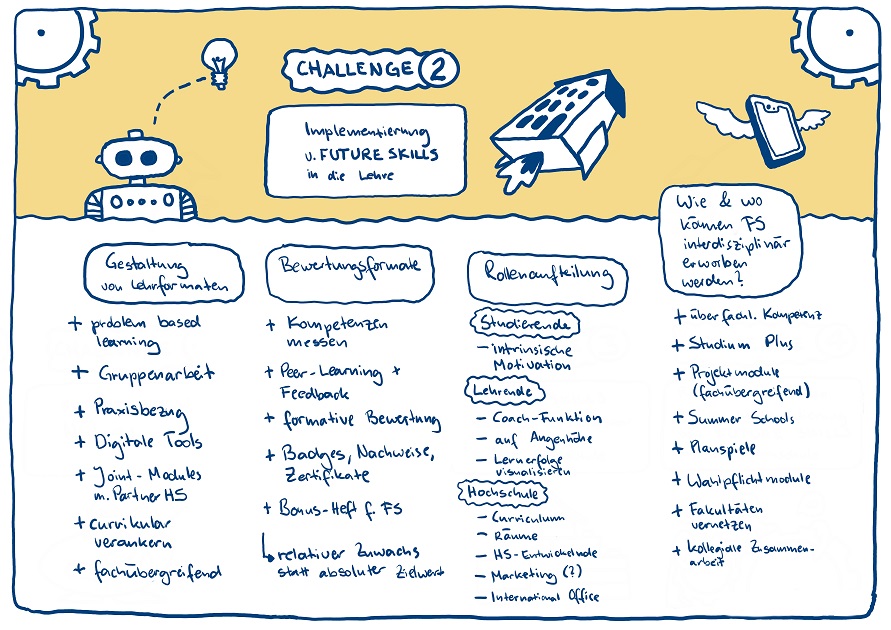 CHALLENGE 2
Implementierung
v. FUTURE SKILLS
in die Lehre
Gestaltung
von Lehrformaten
+ problem based
learning
+ Gruppenarbeit
+ Praxisbezug
+ Digitale Tools
+ Joint-Modules
m. Partner HS
+ curricular
verankern
+ fachübergreifend
Bewertungsformate
+ Kompetenzen
messen
+ Peer-Learning +
Feedback
+ formative Bewertung
+ Badges, Nachweise,
Zertifikate
+ Bonus-Heft f. FS
relativer Zuwachs
statt absoluter Zielwert
Rollenaufteilung
Studierende
– intrinsische
Motivation
Lehrende
– Coach-Funktion
– auf Augenhöhe
– Lernerfolge
visualisieren
Hochschule
– Curriculum
– Räume
– HS-Entwickelnde
– Marketing (?)
– International Office
Wie & wo
können FS
interdisziplinär
erworben
werden?
+ überfachl. Kompetenz
+ Studium Plus
+ Projektmodule
(fachübergreifend)
+ Summer Schools
+ Planspiele
+ Wahlpflichtmodule
+ Fakultäten
vernetzen
+ kollegiale Zusammen-
arbeit